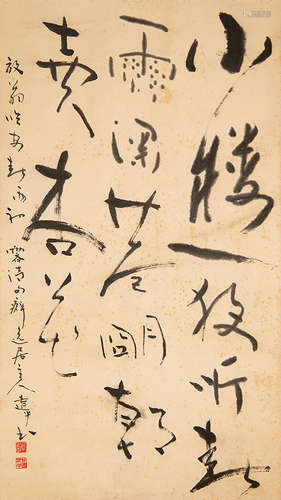 小樓一夜听春
雨深巷明朝
賣杏花
放翁临安春雨初霽诗句 居主人 书